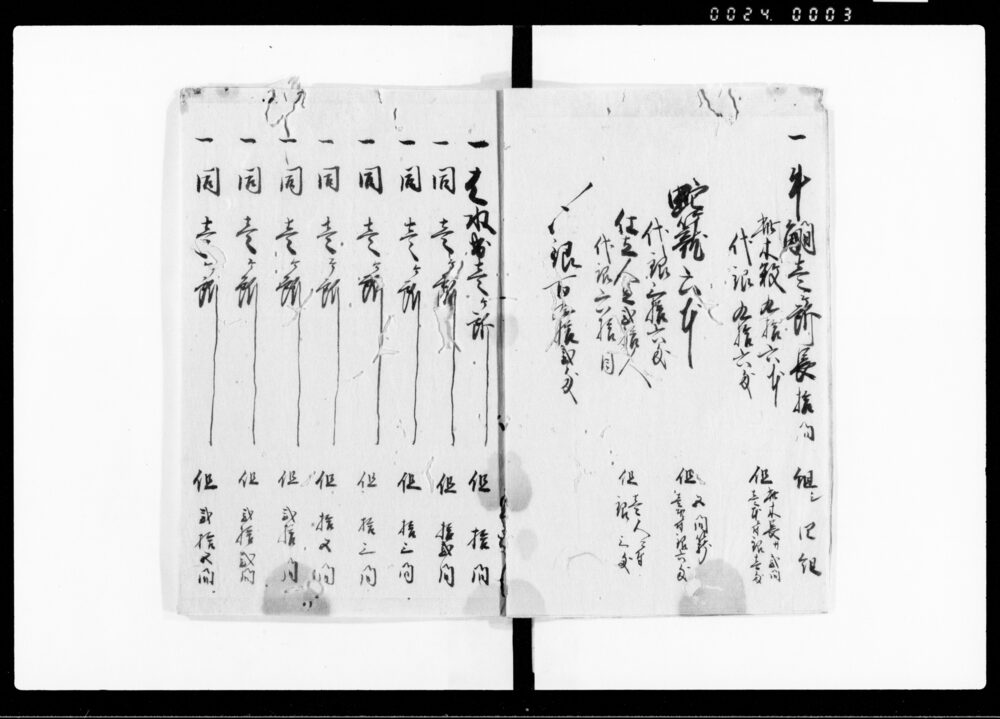 0024 0003
一 牛 壱ヶ所 長拾間 組
木数九拾六本 但 木長サ弐間 壱本ニ付銀壱匁
代銀九拾六匁
蛇籠六本 但 五間 壱本ニ付銀六匁
代銀三拾六匁
仕立人足弐拾人 但 壱人ニ付 銀三匁
代銀六拾目
〆銀百九拾弐匁
一 水 壱ヶ所 但 拾間
一 同 壱ヶ所 但 拾弐間
一 同 壱ヶ所 但 拾三間
一 同 壱ヶ所 但 拾三間
一 同 壱ヶ所 但 拾五間
一 同 壱ヶ所 但 弐拾間
一 同 壱ヶ所 但 弐拾弐間
一 同 壱ヶ所 但 弐拾五間